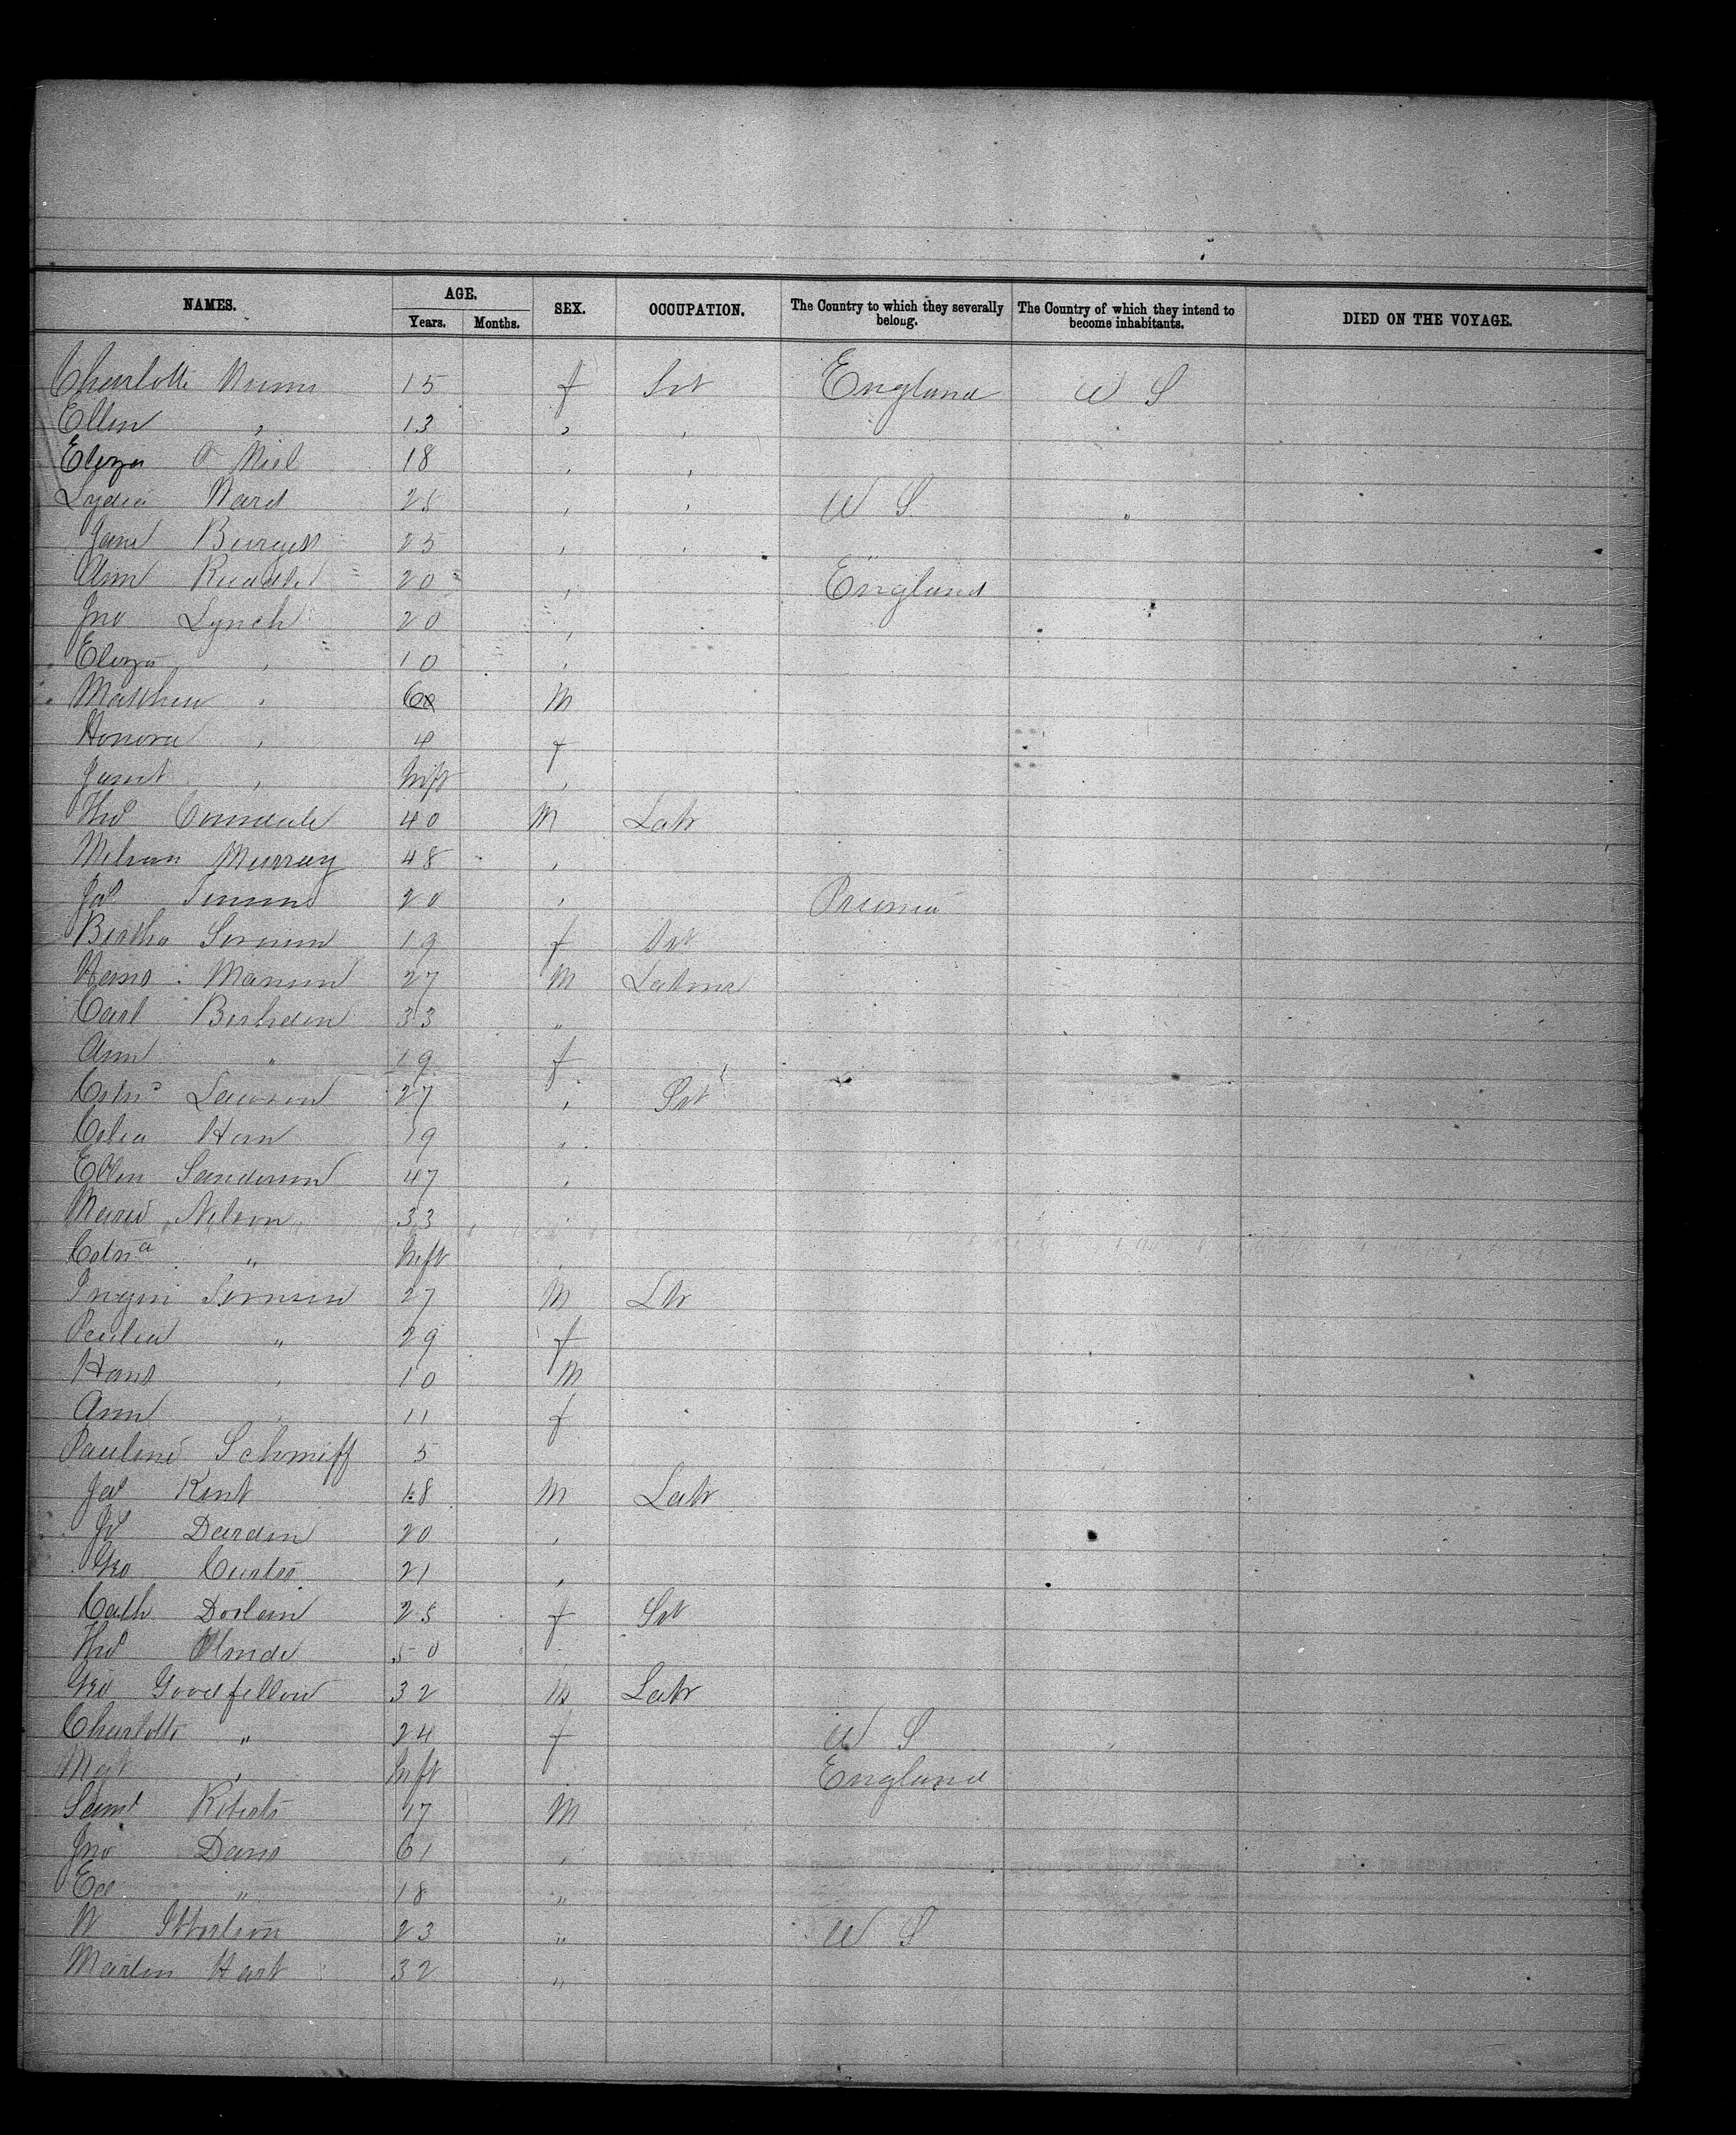 NAMES. AGE. Years. Months. SEX. OCCUPATION. The Country to which they severally belong. The Country of which they intend to become inhabitants. DIED ON THE VOYAGE.
Charlotte 15 f Svt England U S
Ellen , 13 , ,
Eliza O Niel 18 , ,
Lydia Ward 25 , , U S "
Jane Burgess 25 , ,
Ann 20 , England
Jno Lynch 20 ,
Eliza , 10 ,
Matthew , 6 M
Honora , 4 f
Janet , Inft ,
Thos 40 M Labr
Murray 48 ,
Jas 20 , Prussia
Bertha 19 f Svt
Hans 27 M Labour
Carl 33 "
Ann " 19 f
27 , Svt
Horn 19 ,
Ellen Sanderson 47 ,
Marie Nelson 33 ,
Catna " Inft
27 M Lbr
Cecilia " 29 f
Hans , 10 M
Ann , 11 f
Pauline Schmiff 5
Jas Kent 18 M Labr
Jos Darden 20 ,
Geo Curtis 21 ,
Cath 25 f Svt
Thos 50
Geo Goodfellow 32 M Labr
Charlotte " 24 f U S
Mgt , Inft England
Saml Roberts 17 M
Jno Davis 61 ,
Ed " 18 "
W Ibbotson 23 " U S
Martin Hart 32 "